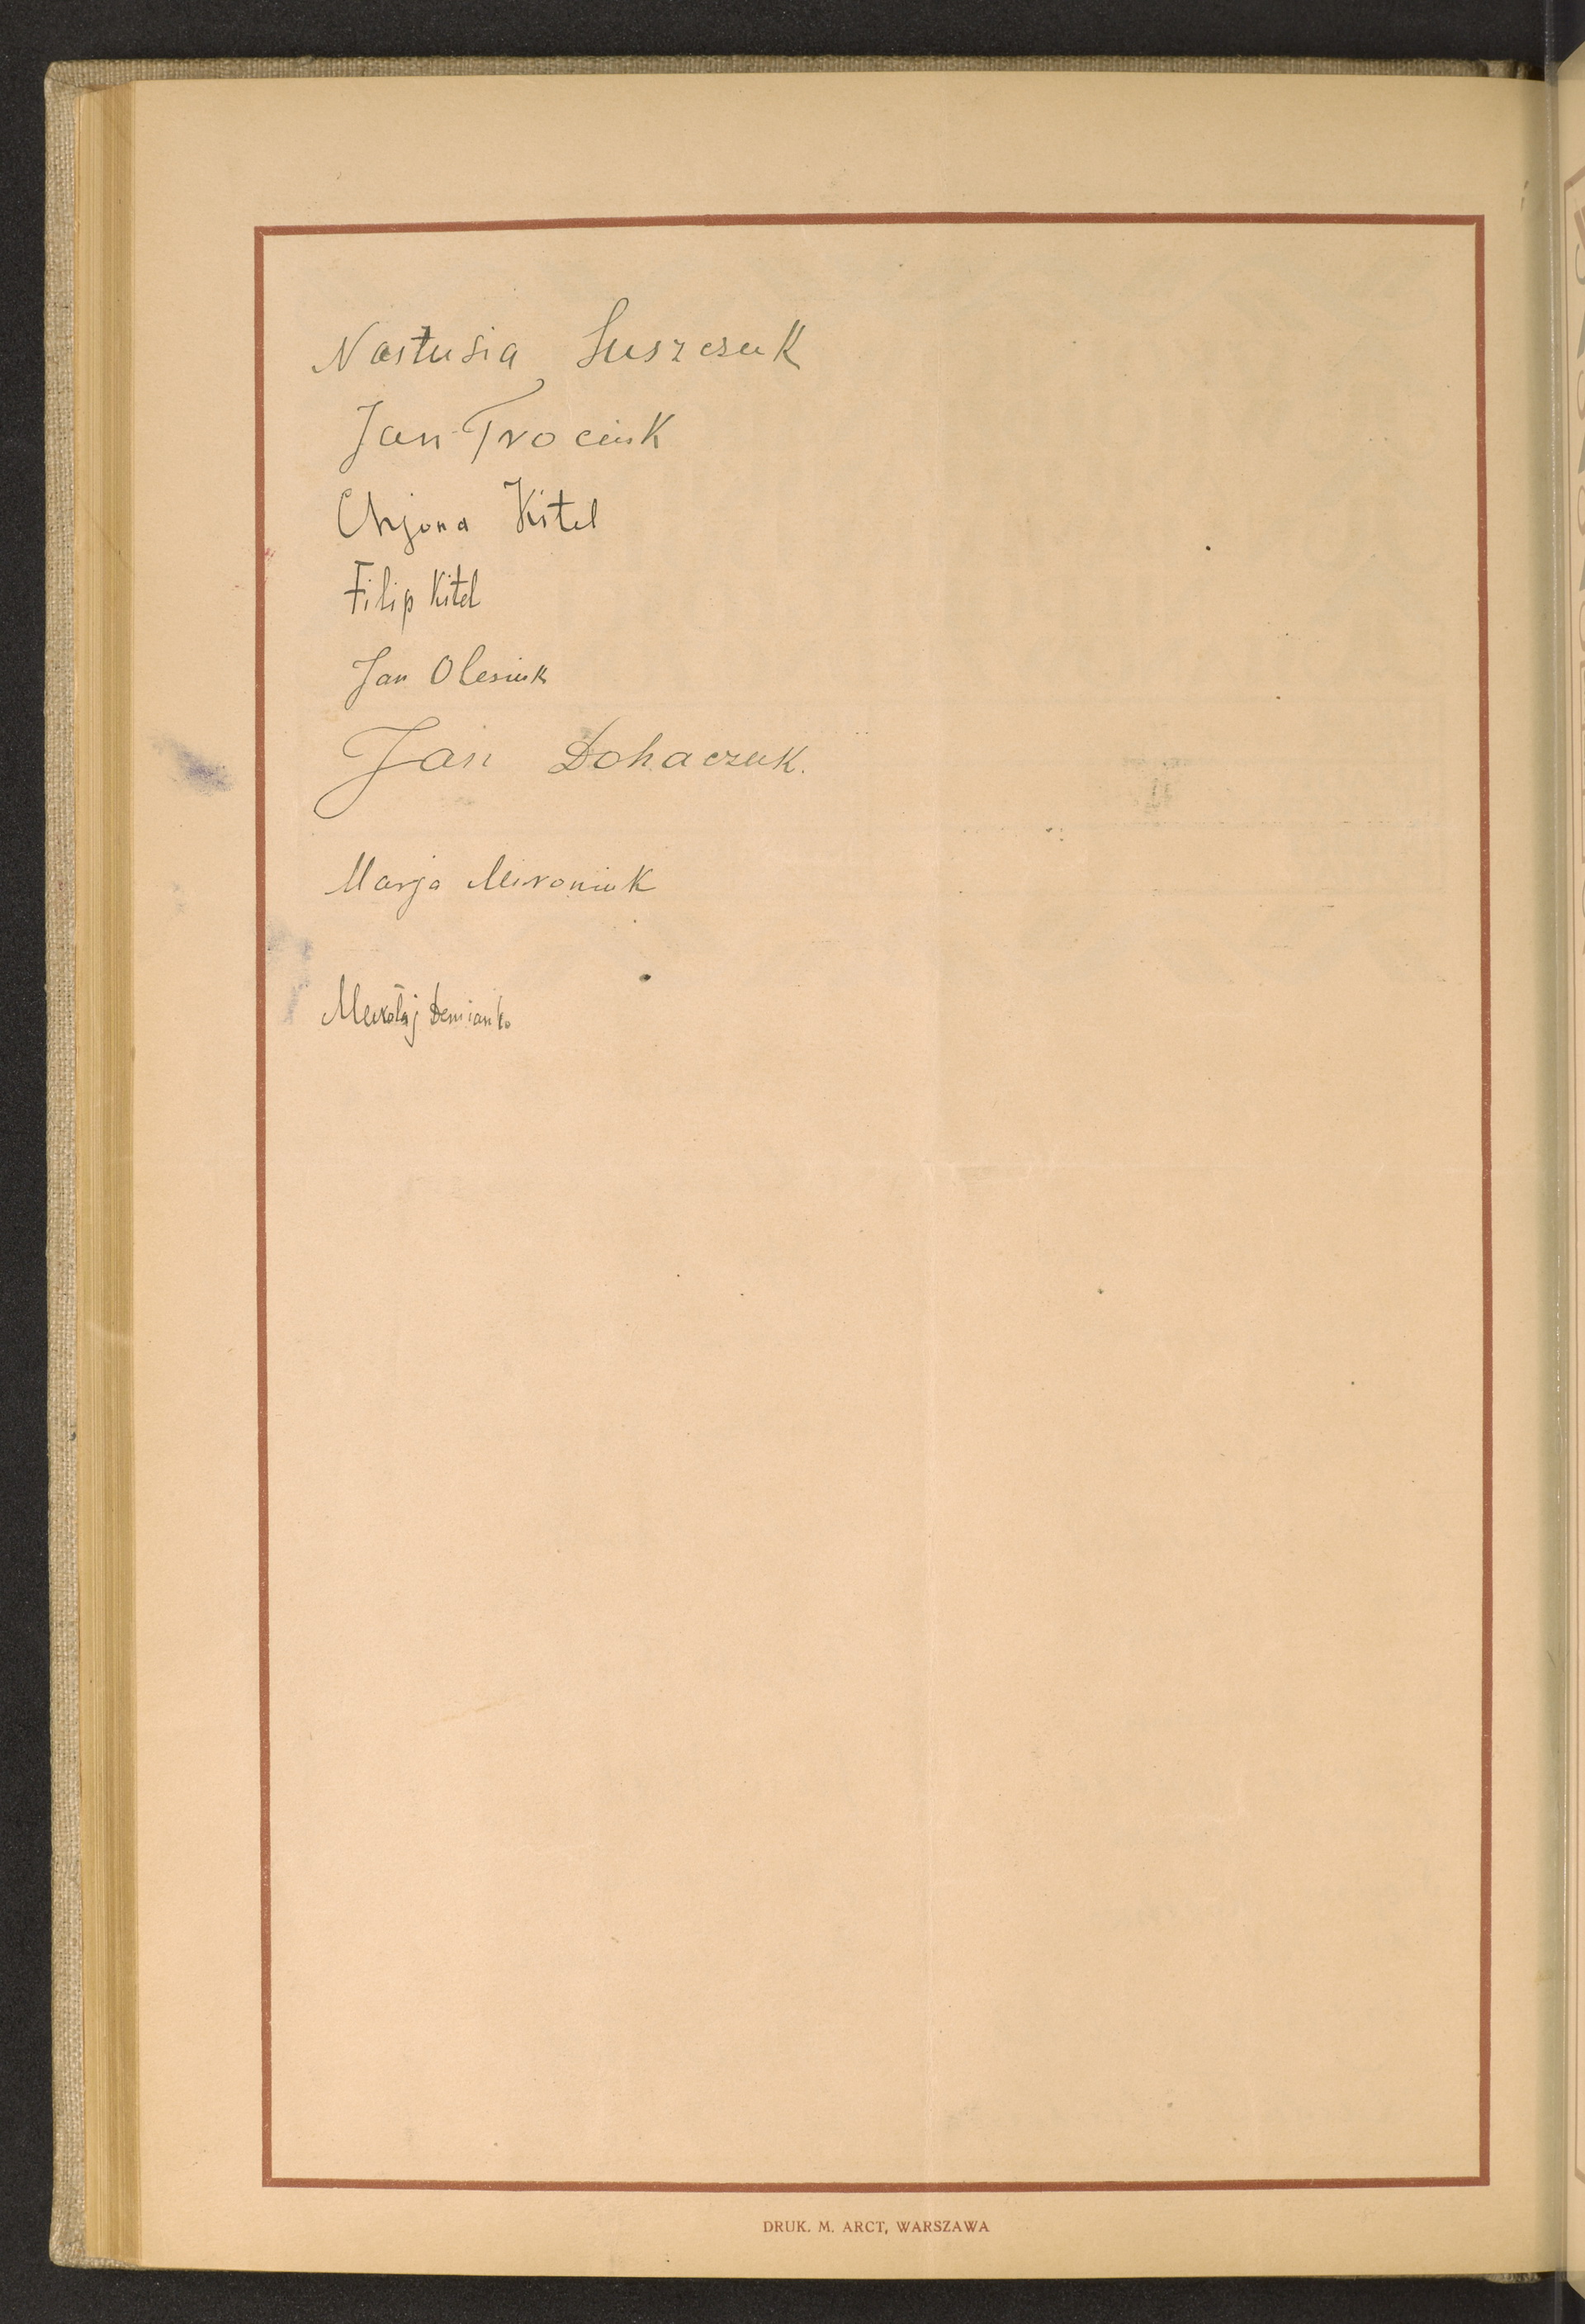 Nastusia Suszczuk
Jan Trociuk
Chrjona Kitel
Filip Kitel
Jan Olesiuk
Jan Dohaczuk.
Marja Mironiuk
Mikołaj Demianko
DRUK. M. ARCT, WARSZAWA